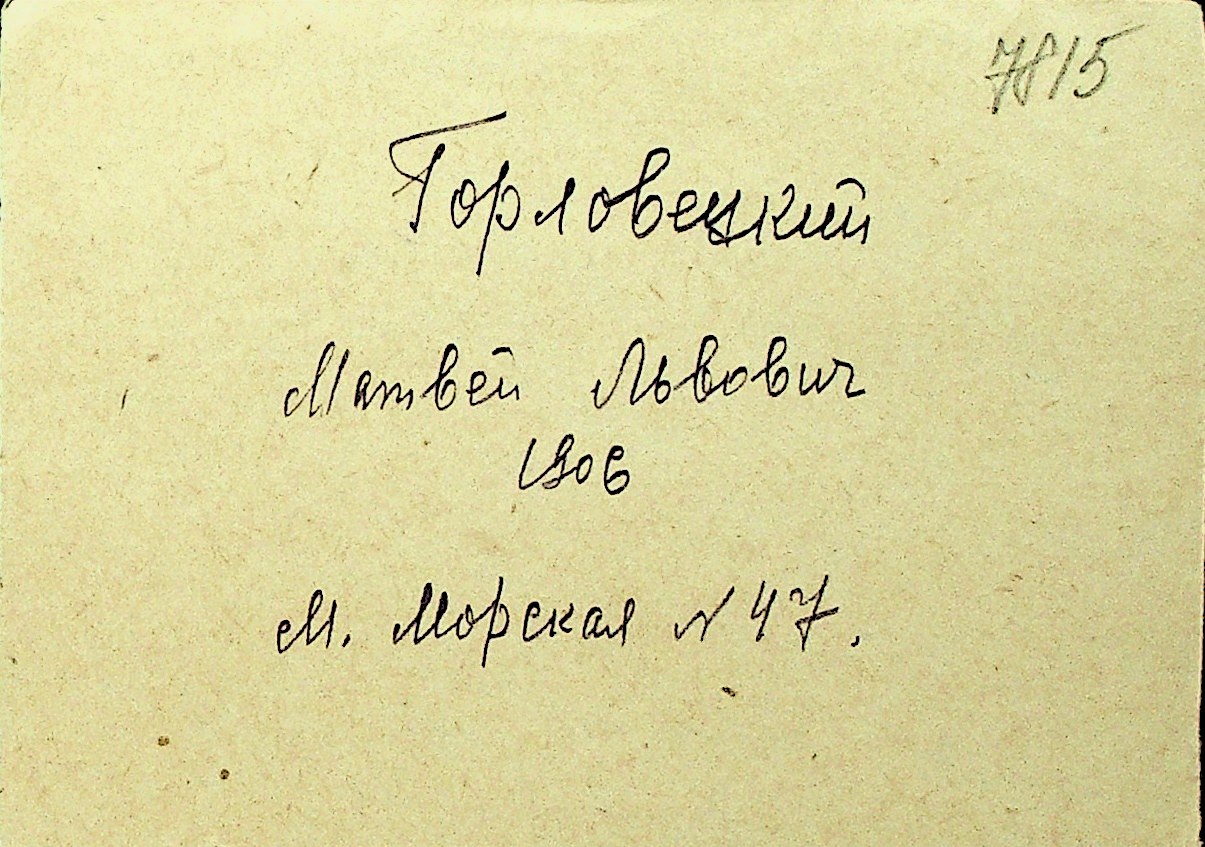 7815
Горловецкий
Матвей Львович
М. Морская N 47.